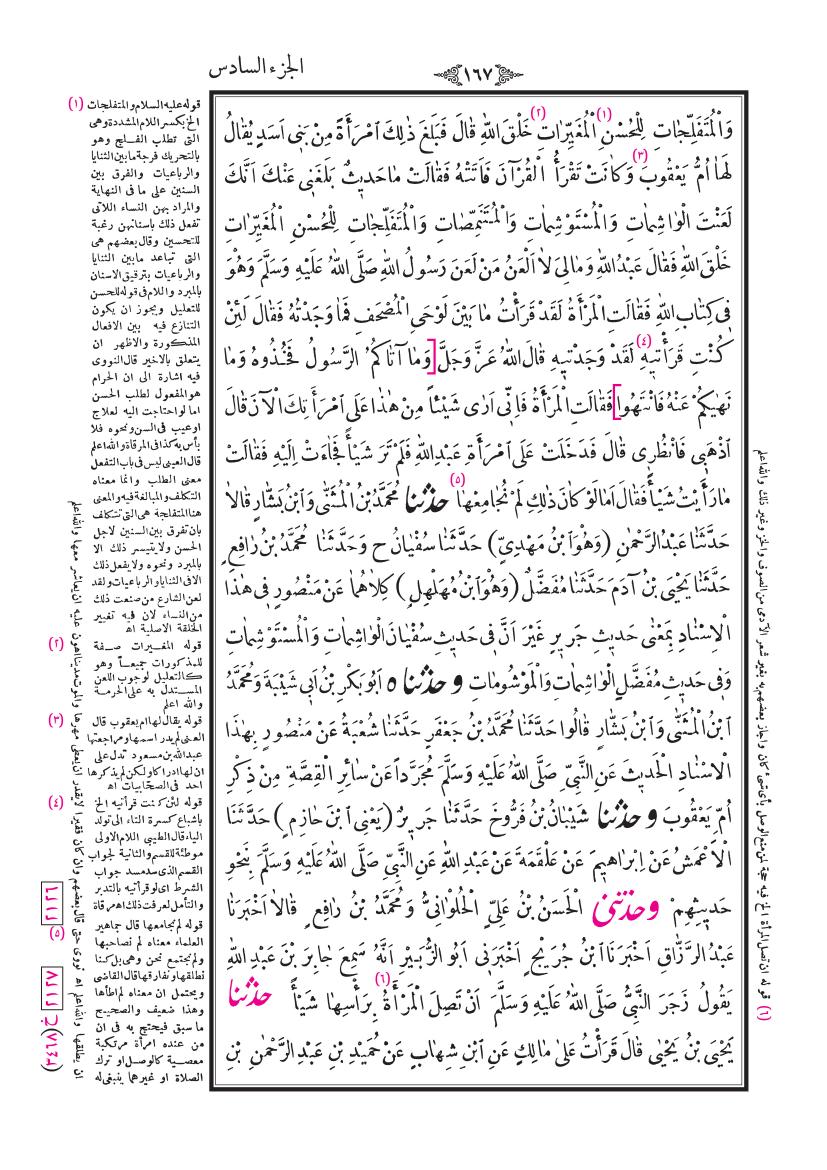 الجزء السادس
١٦٧
وَالْمُتَفَلِّجَاتِ لِلْحُسْنِ (١) الْمُغَيِّرَاتِ (٢) خَلْقَ اللّٰهِ قَالَ فَبَلَغَ ذٰلِكَ امْرَأَةً مِنْ بَنِى اَسَدٍ يُقَالُ
لَهَا اُمُّ يَعْقُوبَ (٣) وَكَانَتْ تَقْرَأُ الْقُرْآنَ فَاَتَتْهُ فَقَالَتْ مَا حَديثٌ بَلَغَنِى عَنْكَ اَنَّكَ
لَعَنْتَ الْوَاشِمَاتِ وَالْمُسْتَوْشِمَاتِ وَالْمُتَنَمِّصَاتِ وَالْمُتَفَلِّجَاتِ لِلْحُسْنِ الْمُغَيِّرَاتِ
خَلْقَ اللّٰهِ فَقَالَ عَبْدُ اللّٰهِ وَمَالِىَ لَا اَلْعَنُ مَنْ لَعَنَ رَسُولُ اللّٰهِ صَلَّى اللّٰهُ عَلَيْهِ وَسَلَّمَ وَهُوَ
فِى كِتَابِ اللّٰهِ فَقَالَتِ الْمَرْأَةُ لَقَدْ قَرَأْتُ مَا بَيْنَ لَوْحَىِ الْمُصْحَفِ فَمَا وَجَدْتُهُ فَقَالَ لَئِنْ
كُنْتِ قَرَأْتِيهِ (٤) لَقَدْ وَجَدْتِيهِ قَالَ اللّٰهُ عَزَّ وَجَلَّ [وَمَا آتَاكُمُ الرَّسُولُ فَخُذُوهُ وَمَا
نَهٰيكُمْ عَنْهُ فَانْتَهُوا] فَقَالَتِ الْمَرْأَةُ فَاِنِّى اَرٰى شَيْئًا مِنْ هٰذَا عَلَى امْرَأَتِكَ الْآنَ قَالَ
اذْهَبِى فَانْظُرِى قَالَ فَدَخَلَتْ عَلَى امْرَأَةِ عَبْدِ اللّٰهِ فَلَمْ تَرَ شَيْأً فَجَاءَتْ اِلَيْهِ فَقَالَتْ
مَا رَأَيْتُ شَيْأً فَقَالَ اَمَا لَوْ كَانَ ذٰلِكِ لَمْ نُجَامِعْهَا (٥) حَدَّثَنَا مُحَمَّدُ بْنُ الْمُثَنَّى وَابْنُ بَشَّارٍ قَالَا
حَدَّثَنَا عَبْدُ الرَّحْمٰنِ (وَهُوَ ابْنُ مَهْدِىٍّ) حَدَّثَنَا سُفْيَانُ ح وَحَدَّثَنَا مُحَمَّدُ بْنُ رَافِعٍ
حَدَّثَنَا يَحْيَى بْنُ آدَمَ حَدَّثَنَا مُفَضَّلٌ (وَهُوَ ابْنُ مُهَلْهِلٍ) كِلَاهُمَا عَنْ مَنْصُورٍ فِى هٰذَا
الْاِسْنَادِ بِمَعْنَى حَديثِ جَرِيرٍ غَيْرَ اَنَّ فِى حَديثِ سُفْيَانَ الْوَاشِمَاتِ وَالْمُسْتَوْشِمَاتِ
وَفِى حَديثِ مُفَضَّلٍ الْوَاشِمَاتِ وَالْمَوْشُومَاتِ وَحَدَّثَنَاهُ اَبُو بَكْرِ بْنُ اَبِى شَيْبَةَ وَمُحَمَّدُ
ابْنُ الْمُثَنَّى وَابْنُ بَشَّارٍ قَالُوا حَدَّثَنَا مُحَمَّدُ بْنُ جَعْفَرٍ حَدَّثَنَا شُعْبَةُ عَنْ مَنْصُورٍ بِهٰذَا
الْاِسْنَادِ الْحَديثَ عَنِ النَّبِىِّ صَلَّى اللّٰهُ عَلَيْهِ وَسَلَّمَ مُجَرَّداً عَنْ سَائِرِ الْقِصَّةِ مِنْ ذِكْرِ
اُمِّ يَعْقُوبَ وَحَدَّثَنَا شَيْبَانُ بْنُ فَرُّوخَ حَدَّثَنَا جَرِيرٌ (يَعْنِى ابْنَ حَازِمٍ) حَدَّثَنَا
الْاَعْمَشُ عَنْ اِبْرَاهِيمَ عَنْ عَلْقَمَةَ عَنْ عَبْدِ اللّٰهِ عَنِ النَّبِىِّ صَلَّى اللّٰهُ عَلَيْهِ وَسَلَّمَ بِنَحْوِ
حَديثِهِمْ وَحَدَّثَنِى الْحَسَنُ بْنُ عَلِىٍّ الْحُلْوَانِىُّ وَمُحَمَّدُ بْنُ رَافِعٍ قَالَا اَخْبَرَنَا
عَبْدُ الرَّزَّاقِ اَخْبَرَنَا ابْنُ جُرَيْجٍ اَخْبَرَنِى اَبُو الزُّبَيْرِ اَنَّهُ سَمِعَ جَابِرَ بْنَ عَبْدِ اللّٰهِ
يَقُولُ زَجَرَ النَّبِىُّ صَلَّى اللّٰهُ عَلَيْهِ وَسَلَّمَ اَنْ تَصِلَ الْمَرْأَةُ (٦) بِرَأْسِهَا شَيْأً حَدَّثَنَا
يَحْيَى بْنُ يَحْيٰى قَالَ قَرَأْتُ عَلٰى مَالِكٍ عَنِ ابْنِ شِهَابٍ عَنْ حُمَيْدِ بْنِ عَبْدِ الرَّحْمٰنِ بْنِ
(١) قوله عليه السلام والمتفلجات
الخ بكسر اللام المشددة وهى
التى تطلب الفلج وهو
بالتحريك فرجة ما بين الثنايا
والرباعيات والفرق بين
السنين على ما فى النهاية
والمراد بهن النساء اللاتى
تفعل ذلك بأسنانهن رغبة
للتحسين وقال بعضهم هى
التى تباعد ما بين الثنايا
والرباعيات بترقيق الاسنان
بالمبرد واللام فى قوله للحسن
للتعليل ويجوز ان يكون
التنازع فيه بين الافعال
المذكورة والاظهر ان
يتعلق بالاخير قال النووى
فيه اشارة الى ان الحرام
هو المفعول لطلب الحسن
اما لو احتاجت اليه لعلاج
او عيب فى السن ونحوه فلا
بأس به كذا فى المرقاة والله اعلم
قال العينى ليس فى باب التفعل
معنى الطلب وانما معناه
التكلف والمبالغة فيه والمعنى
هنا المتفلجة هى التى تتكلف
بان تفرق بين السنين لاجل
الحسن ولا يتيسر ذلك الا
بالمبرد ونحوه ولا يفعل ذلك
الا فى الثنايا والرباعيات ولقد
لعن الشارع من صنعت ذلك
من النساء لان فيه تغيير
الخلقة الاصلية اه
(٢) قوله المغيرات صفة
للمذكورات جميعاً وهو
كالتعليل لوجوب اللعن
المستدل به على الحرمة
والله اعلم
(٣) قوله يقال لها ام يعقوب قال
العينى لم يدر اسمها ومراجعتها
عبد الله بن مسعود تدل على
ان لها ادراكا ولكن لم يذكرها
احد فى الصحابيات اه
(٤) قوله لئن كنت قرأتيه الخ
باشباع كسرة التاء الى تولد
الياء قال الطيبى اللام الاولى
موطئة للقسم والثانية لجواب
القسم الذى سد مسد جواب
الشرط اى لو قرأتيه بالتدبر
والتأمل لعرفت ذلك اه مرقاة
(٥) قوله لم نجامعها قال جماهير
العلماء معناه لم نصاحبها
ولم نجتمع نحن وهى بل كنا
نطلقها ونفارقها قال القاضى
ويحتمل ان معناه لم اطأها
وهذا ضعيف والصحيح
ما سبق فيحتج به فى ان
من عنده امرأة مرتكبة
معصية كالوصل او ترك
الصلاة او غيرهما ينبغى له
ان يطلقها والله اعلم اه نووى حتى قال بعضهم وان كان فقيرا لا يقدر ان يعطى مهرها والموت مديناً اهون عليه ان يعاشر معها والله اعلم
(٦) قوله ان تصل المرأة الخ فيه حجة لمن منع الوصل بأى شئ كان واجاز بعضهم به بغير شعر الآدمى من الصوف والخز وغير ذلك والله اعلم
٢١٢٦
٢١٢٧